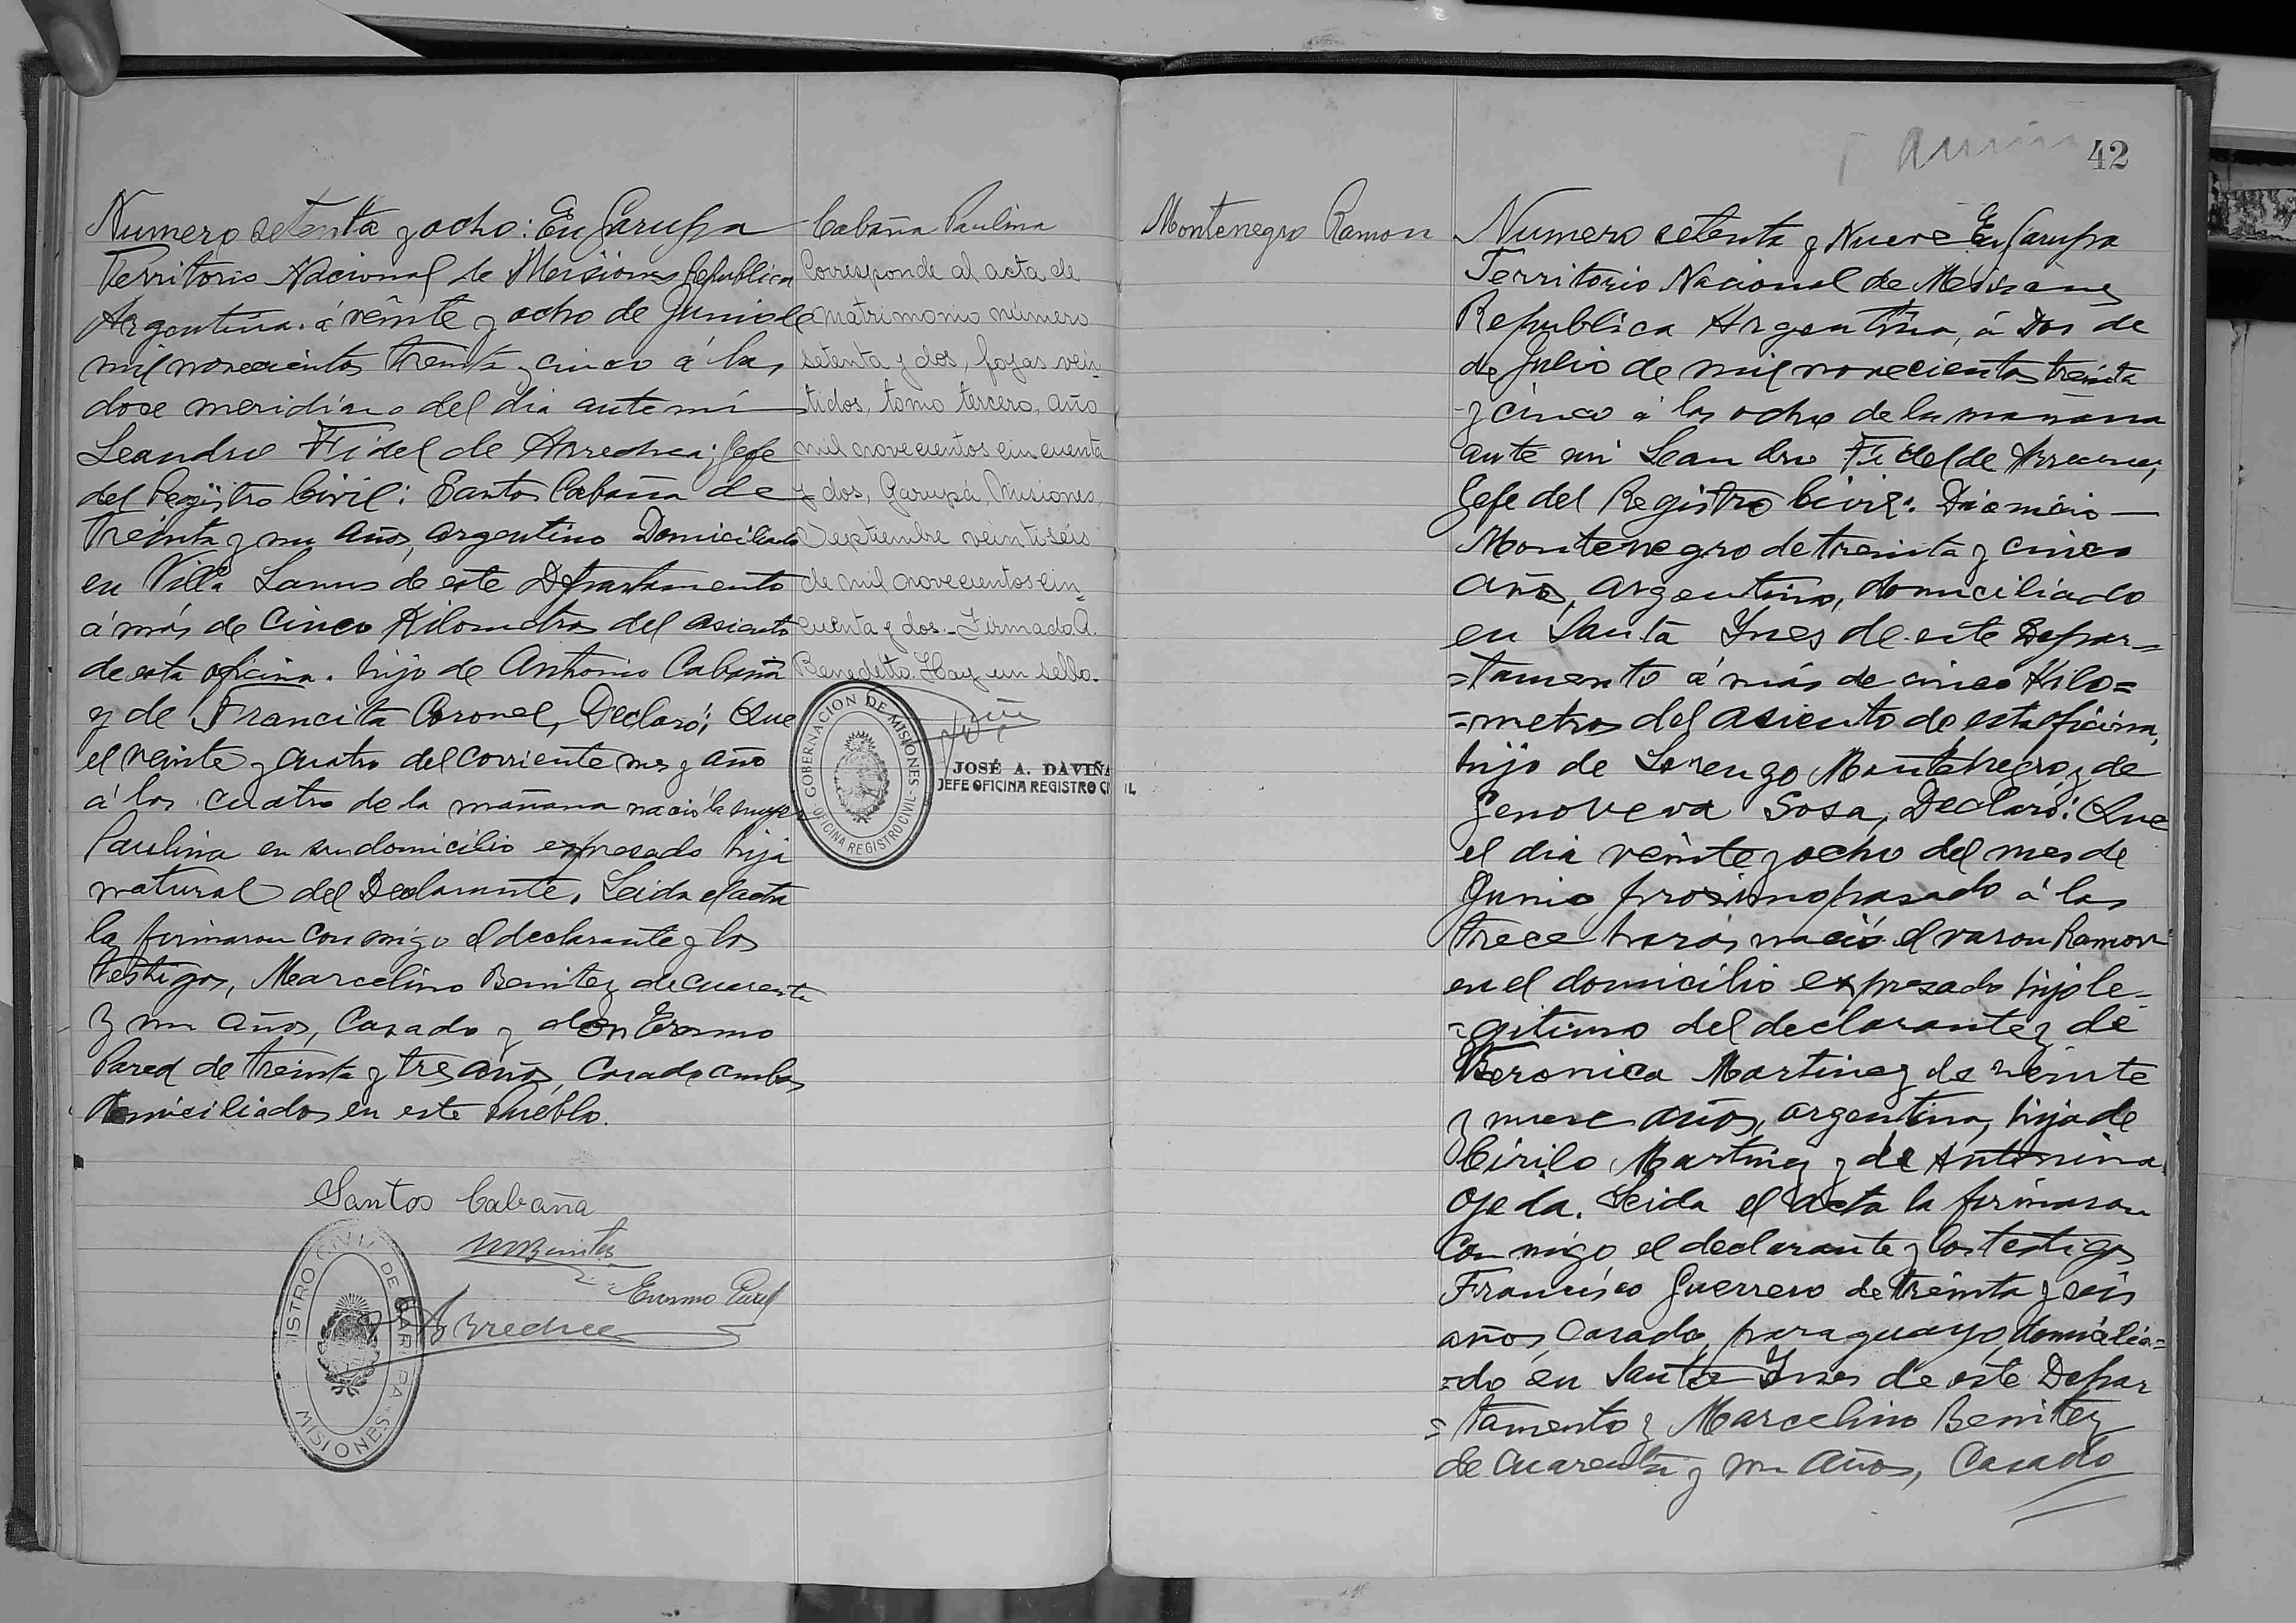 Numero setenta y ocho: En Garupa
Territorio Nacional de Misiones Republica
Argentina. á veinte y ocho de Junio de
mil novecientos treinta y cinco á las
doce meridiano del dia ante mi
Leandro Fidel de Arrechea; Jefe
del Registro Civil: Santos Cabaña de
treinta y un años, argentino Domiciliado
en Villa Lanus de este Departamento
á más de cinco Kilometros del asiento
de esta oficina. hijo de Antonio Cabaña
y de Francita Coronel, Declaró; Que
el veinte y cuatro del corriente mes y año
á las cuatro de la mañana nació la mujer
Paulina en su domicilio expresado hija
natural del Declarante. Leida el acta
la firmaron con migo el declarante y los
testigos, Marcelino Benitez de cuarenta
y un años, Casado y don Erasmo
Pared de treinta y tres años, Casado ambos
domiciliados en este Pueblo.
Santos Cabaña
MBenitez
Erasmo Pared
Arrechea
ISTRO CIVIL DE GARUPA
MISIONES
Cabaña Paulina
Corresponde al acta de
matrimonio número
setenta y dos, fojas vein-
tidos, tomo tercero, año
mil novecientos cincuenta
y dos, Garupá, Misiones,
Septiembre veintiseis
de mil novecientos cin-
cuenta y dos.- Firmado A.
Benedetto. Hay un sello.
GOBERNACION DE MISIONES
OFICINA REGISTRO CIVIL
JOSÉ A. DAVIÑA
JEFE OFICINA REGISTRO CIVIL
42
Montenegro Ramon
Numero setenta y Nueve En Garupa
Territorio Nacional de Misiones
Republica Argentina, á Dos de
de Julio de mil novecientos treinta
y cinco á las ocho de la mañana
ante mi Leandro Fidel de Arrechea,
Jefe del Registro Civil: Dionicio
Montenegro de treinta y cinco
años, argentino, domiciliado
en Santa Ynes de este Depar=
=tamento á más de cinco Kilo=
=metros del asiento de esta oficina,
hijo de Lorenzo Montenegro y de
Genoveva Sosa, Declaró: Que
el dia veinte y ocho del mes de
Junio proximo pasado á las
trece horas nació el varon Ramon
en el domicilio expresado hijo le=
=gitimo del declarante y de
Veronica Martinez de veinte
y nueve años, argentina, hija de
Cirilo Martinez y de Antonina
Ojeda. Leida el Acta la firmaron
con migo el declarante y los testigos
Francisco Guerrero de treinta y seis
años, Casado, paraguayo, domicilia=
=do en Santa Ynes de este Depar
=tamento y Marcelino Benitez
de cuarenta y un años, Casado